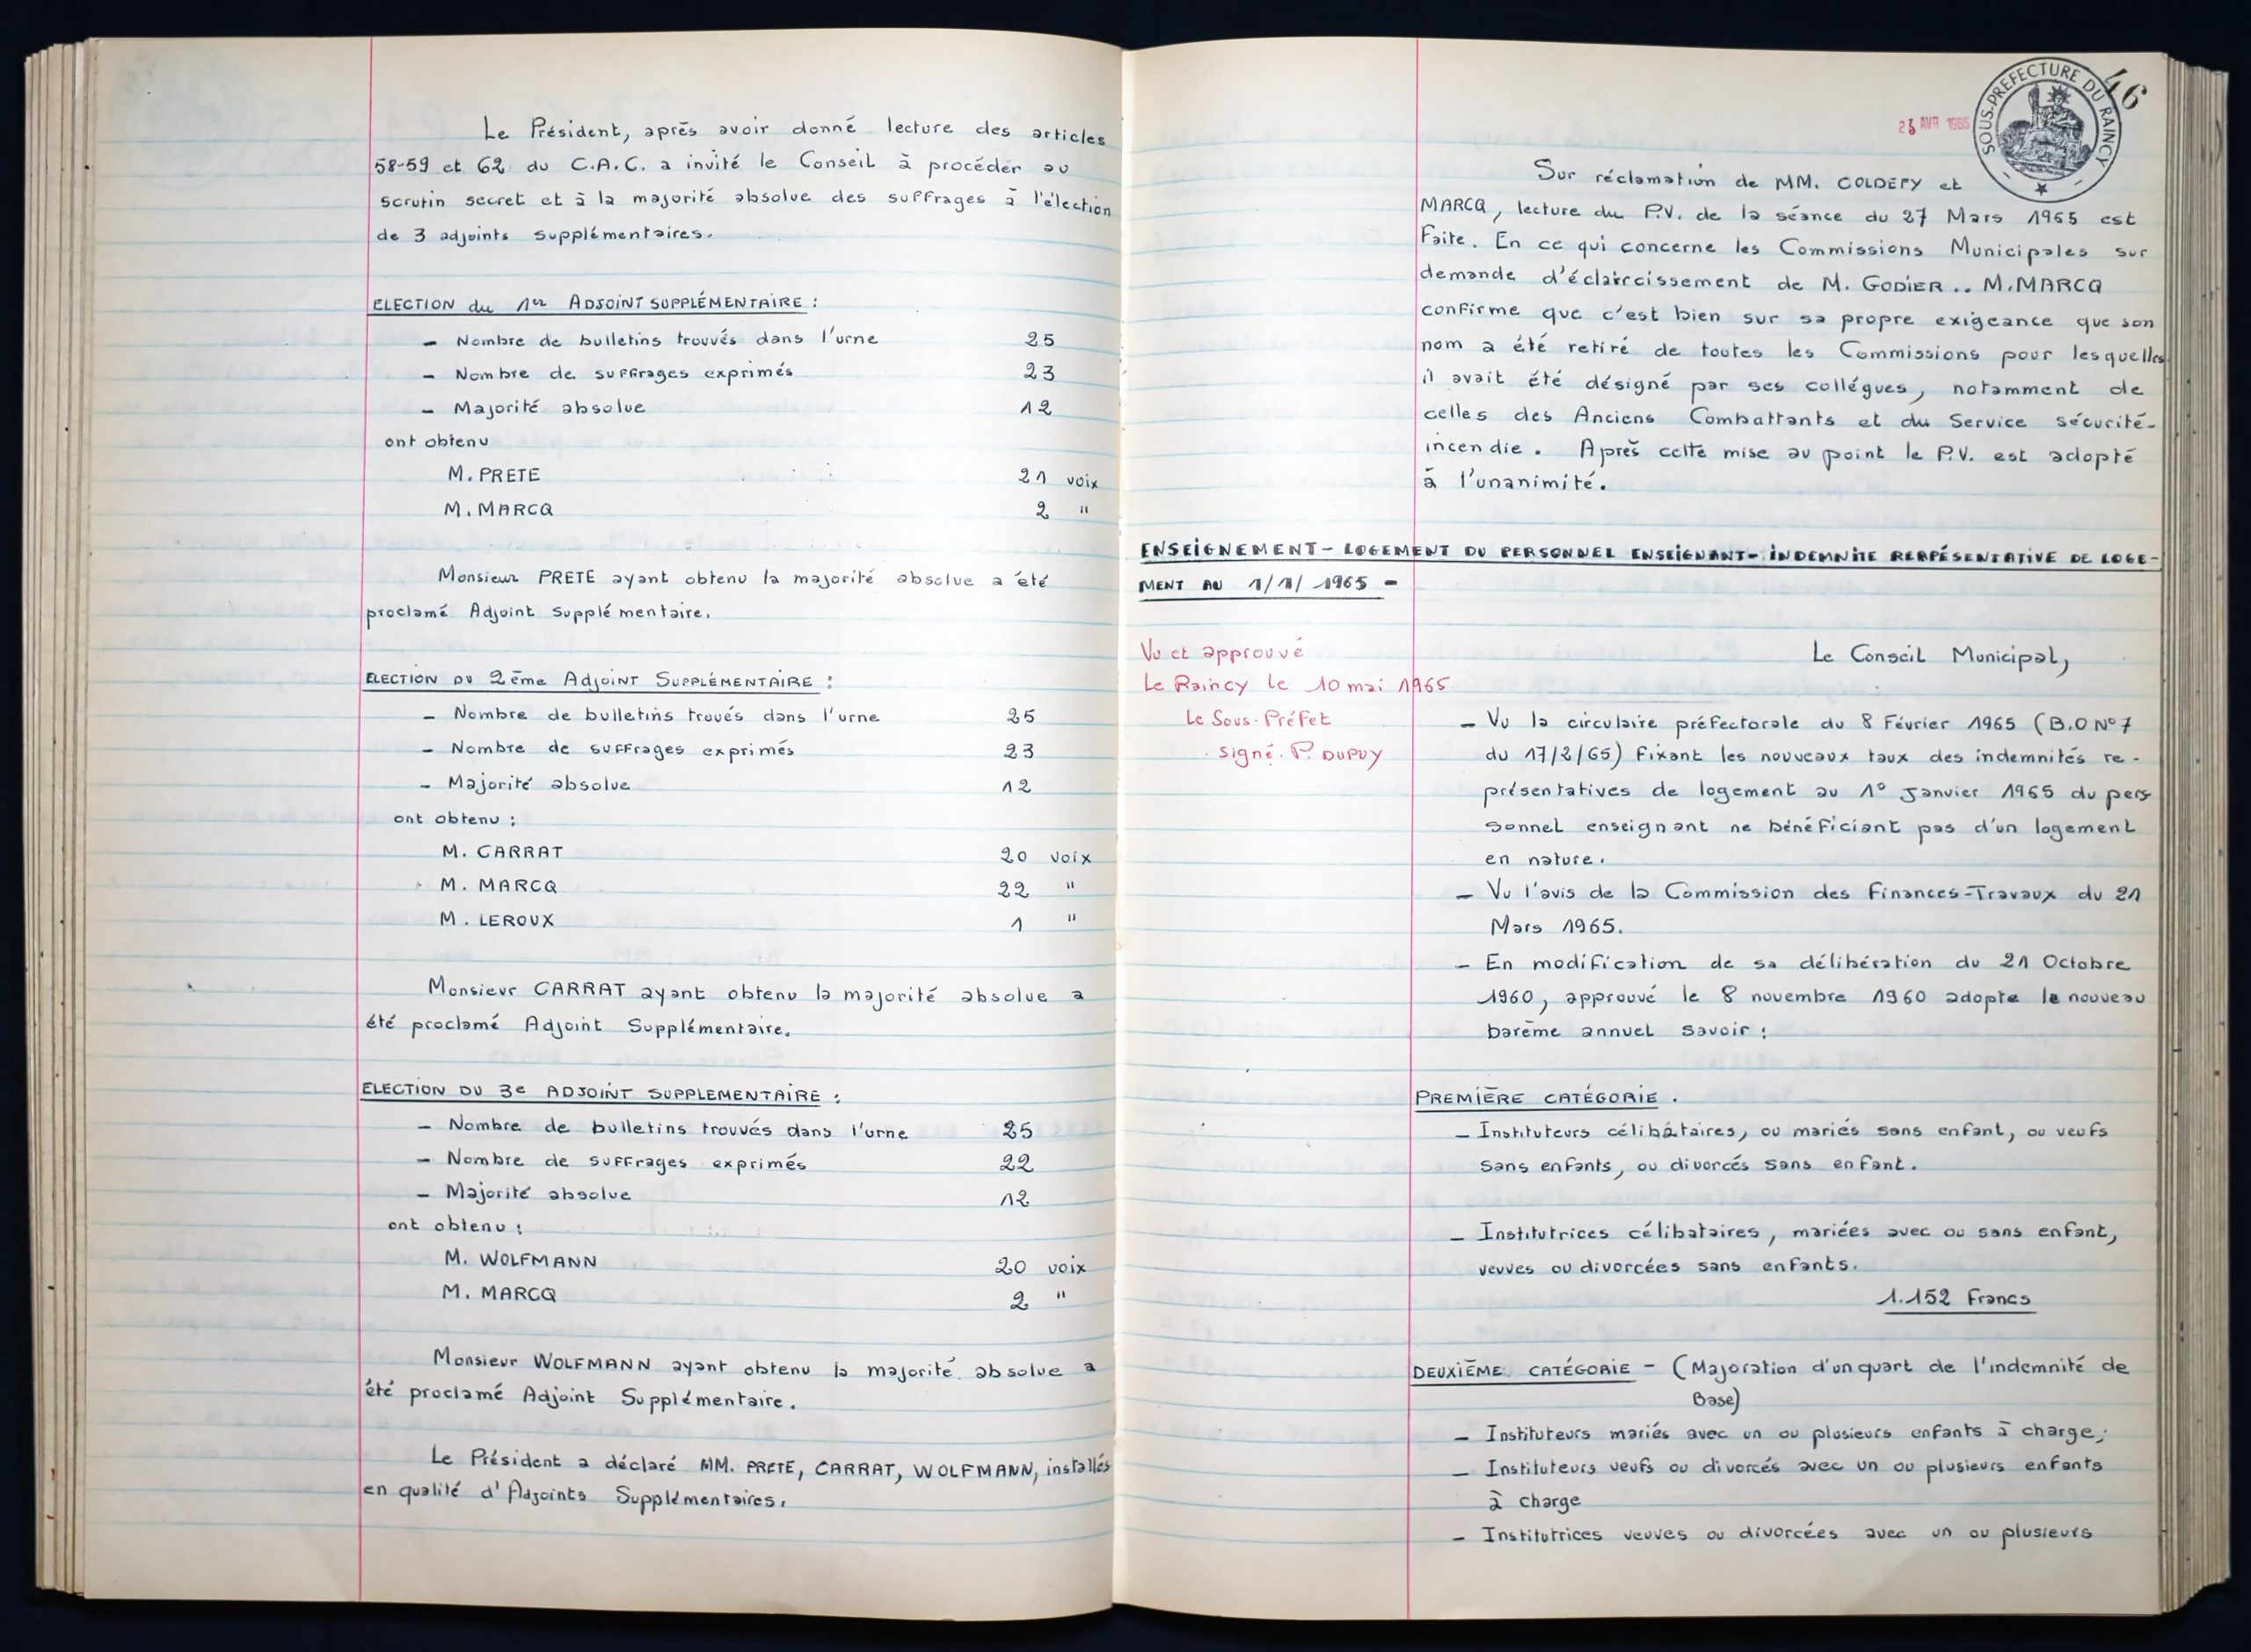 Le Président, après avoir donné lecture des articles
58-59 et 62 du C.A.C. a invité le Conseil à procéder au
scrutin secret et à la majorité absolue des suffrages à l'élection
de 3 adjoints supplémentaires.
ELECTION du 1er ADJOINT SUPPLÉMENTAIRE :
- Nombre de bulletins trouvés dans l'urne 25
- Nombre de suffrages exprimés 23
- Majorité absolue 12
ont obtenu
M. PRETE 21 voix
M. MARCQ 2 "
Monsieur PRETE ayant obtenu la majorité absolue a été
proclamé Adjoint Supplémentaire.
ELECTION DU 2ème ADJOINT SUPPLÉMENTAIRE :
- Nombre de bulletins troués dans l'urne 25
- Nombre de suffrages exprimés 23
- Majorité absolue 12
ont obtenu :
M. CARRAT 20 voix
M. MARCQ 22 "
M. LEROUX 1 "
Monsieur CARRAT ayant obtenu la majorité absolue a
été proclamé Adjoint Supplémentaire.
ELECTION DU 3e ADJOINT SUPPLEMENTAIRE :
- Nombre de bulletins trouvés dans l'urne 25
- Nombre de suffrages exprimés 22
- Majorité absolue 12
ont obtenu :
M. WOLFMANN 20 voix
M. MARCQ 2 "
Monsieur WOLFMANN ayant obtenu la majorité absolue a
été proclamé Adjoint Supplémentaire.
Le Président a déclaré MM. PRETE, CARRAT, WOLFMANN, installés
en qualité d'Adjoints Supplémentaires.
46
SOUS-PREFECTURE DU RAINCY
23 AVR 1965
Sur réclamation de MM. COLDEFY et
MARCQ, lecture du P.V. de la séance du 27 Mars 1965 est
Faite. En ce qui concerne les Commissions Municipales sur
demande d'éclaircissement de M. GODIER .. M. MARCQ
confirme que c'est bien sur sa propre exigeance que son
nom a été retiré de toutes les Commissions pour lesquelles
il avait été désigné par ses collégues, notamment de
celles des Anciens Combattants et du Service sécurité-
incendie. Après cette mise au point le P.V. est adopté
à l'unanimité.
ENSEIGNEMENT - LOGEMENT DU PERSONNEL ENSEIGNANT - INDEMNITE RERPÉSENTATIVE DE LOGE-
MENT AU 1/1/1965 -
Vu et approuvé
Le Raincy le 10 mai 1965
Le Sous-Préfet
Signé. P. DUPUY
Le Conseil Municipal,
- Vu la circulaire préfectorale du 8 Février 1965 (B.O N°7
du 17/2/65) Fixant les nouveaux taux des indemnités re-
présentatives de logement au 1° Janvier 1965 du pers
sonnel enseignant ne bénéficiant pas d'un logement
en nature.
- Vu l'avis de la Commission des Finances-Travaux du 21
Mars 1965.
- En modification de sa délibération du 21 Octobre
1960, approuvé le 8 novembre 1960 adopte le nouveau
barème annuel savoir :
PREMIÈRE CATÉGORIE .
- Instituteurs célibataires, ou mariés sans enfant, ou veufs
sans enfants, ou divorcés sans enfant.
- Institutrices célibataires, mariées avec ou sans enfant,
veuves ou divorcées sans enfants.
1.152 Francs
DEUXIÈME CATÉGORIE - (Majoration d'un quart de l'indemnité de
Base)
- Instituteurs mariés avec un ou plusieurs enfants à charge;
- Instituteurs veufs ou divorcés avec un ou plusieurs enfants
à charge
- Institutrices veuves ou divorcées avec un ou plusieurs